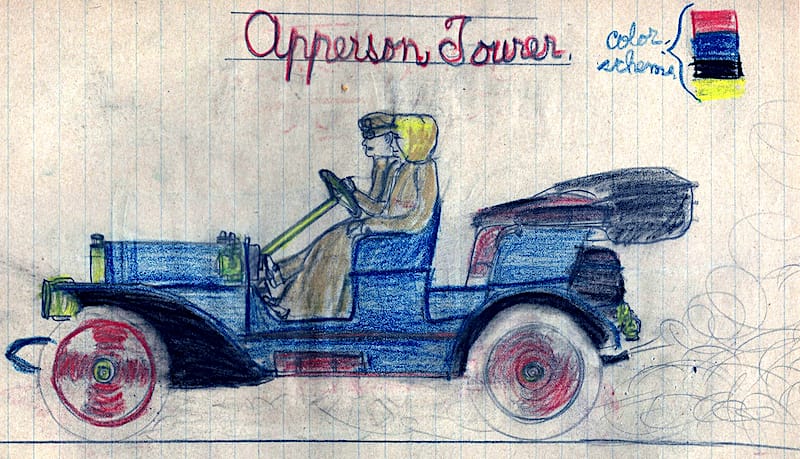 Apperson Tourer.
color
scheme